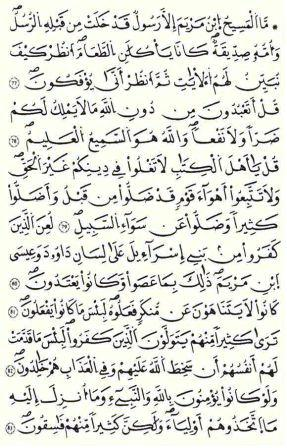 مَّا اَ۬لْمَسِيحُ اُ۪بْنُ مَرْيَمَ إِلَّا رَسُولٌ قَدْ خَلَتْ مِن قَبْلِهِ اِ۬لرُّسُلُ
وَأُمُّهُۥ صِدِّيقَةٌ كَانَا يَأْكُلَٰنِ اِ۬لطَّعَامَ اَ۟نظُرْ كَيْفَ
نُبَيِّنُ لَهُمُ اُ۬لْأٓيَٰتِ ثُمَّ اَ۟نظُرْ أَنَّىٰ يُؤْفَكُونَ ٧٧
قُلْ أَتَعْبُدُونَ مِن دُونِ اِ۬للَّهِ مَا لَا يَمْلِكُ لَكُمْ
ضَرّاً وَلَا نَفْعاً وَاللَّهُ هُوَ اَ۬لسَّمِيعُ اُ۬لْعَلِيمُ ٧٨
قُلْ يَٰأَهْلَ اَ۬لْكِتَٰبِ لَا تَغْلُواْ فِي دِينِكُمْ غَيْرَ اَ۬لْحَقِّ
وَلَا تَتَّبِعُواْ أَهْوَآءَ قَوْمٍ قَدْ ضَلُّواْ مِن قَبْلُ وَأَضَلُّواْ
كَثِيراً وَضَلُّواْ عَن سَوَآءِ اِ۬لسَّبِيلِ ٧٩ لُعِنَ اَ۬لذِينَ
كَفَرُواْ مِنۢ بَنِي إِسْرَآءِيلَ عَلَىٰ لِسَانِ دَاوُۥدَ وَعِيسَى
اَ۪بْنِ مَرْيَمَ ذَٰلِكَ بِمَا عَصَواْ وَّكَانُواْ يَعْتَدُونَ ٨٠
كَانُواْ لَا يَتَنَاهَوْنَ عَن مُّنكَرٍ فَعَلُوهُ لَبِئْسَ مَا كَانُواْ يَفْعَلُونَ ٨١
تَرَىٰ كَثِيراً مِّنْهُمْ يَتَوَلَّوْنَ اَ۬لذِينَ كَفَرُواْ لَبِئْسَ مَا قَدَّمَتْ
لَهُمْ أَنفُسُهُمْ أَن سَخِطَ اَ۬للَّهُ عَلَيْهِمْ وَفِي اِ۬لْعَذَابِ هُمْ خَٰلِدُونَ ٨٢
وَلَوْ كَانُواْ يُؤْمِنُونَ بِاللَّهِ وَالنَّبِيٓءِ وَمَآ أُنزِلَ إِلَيْهِ
مَا اَ۪تَّخَذُوهُمْ أَوْلِيَآءَ وَلَٰكِنَّ كَثِيراً مِّنْهُمْ فَٰسِقُونَ ٨٣